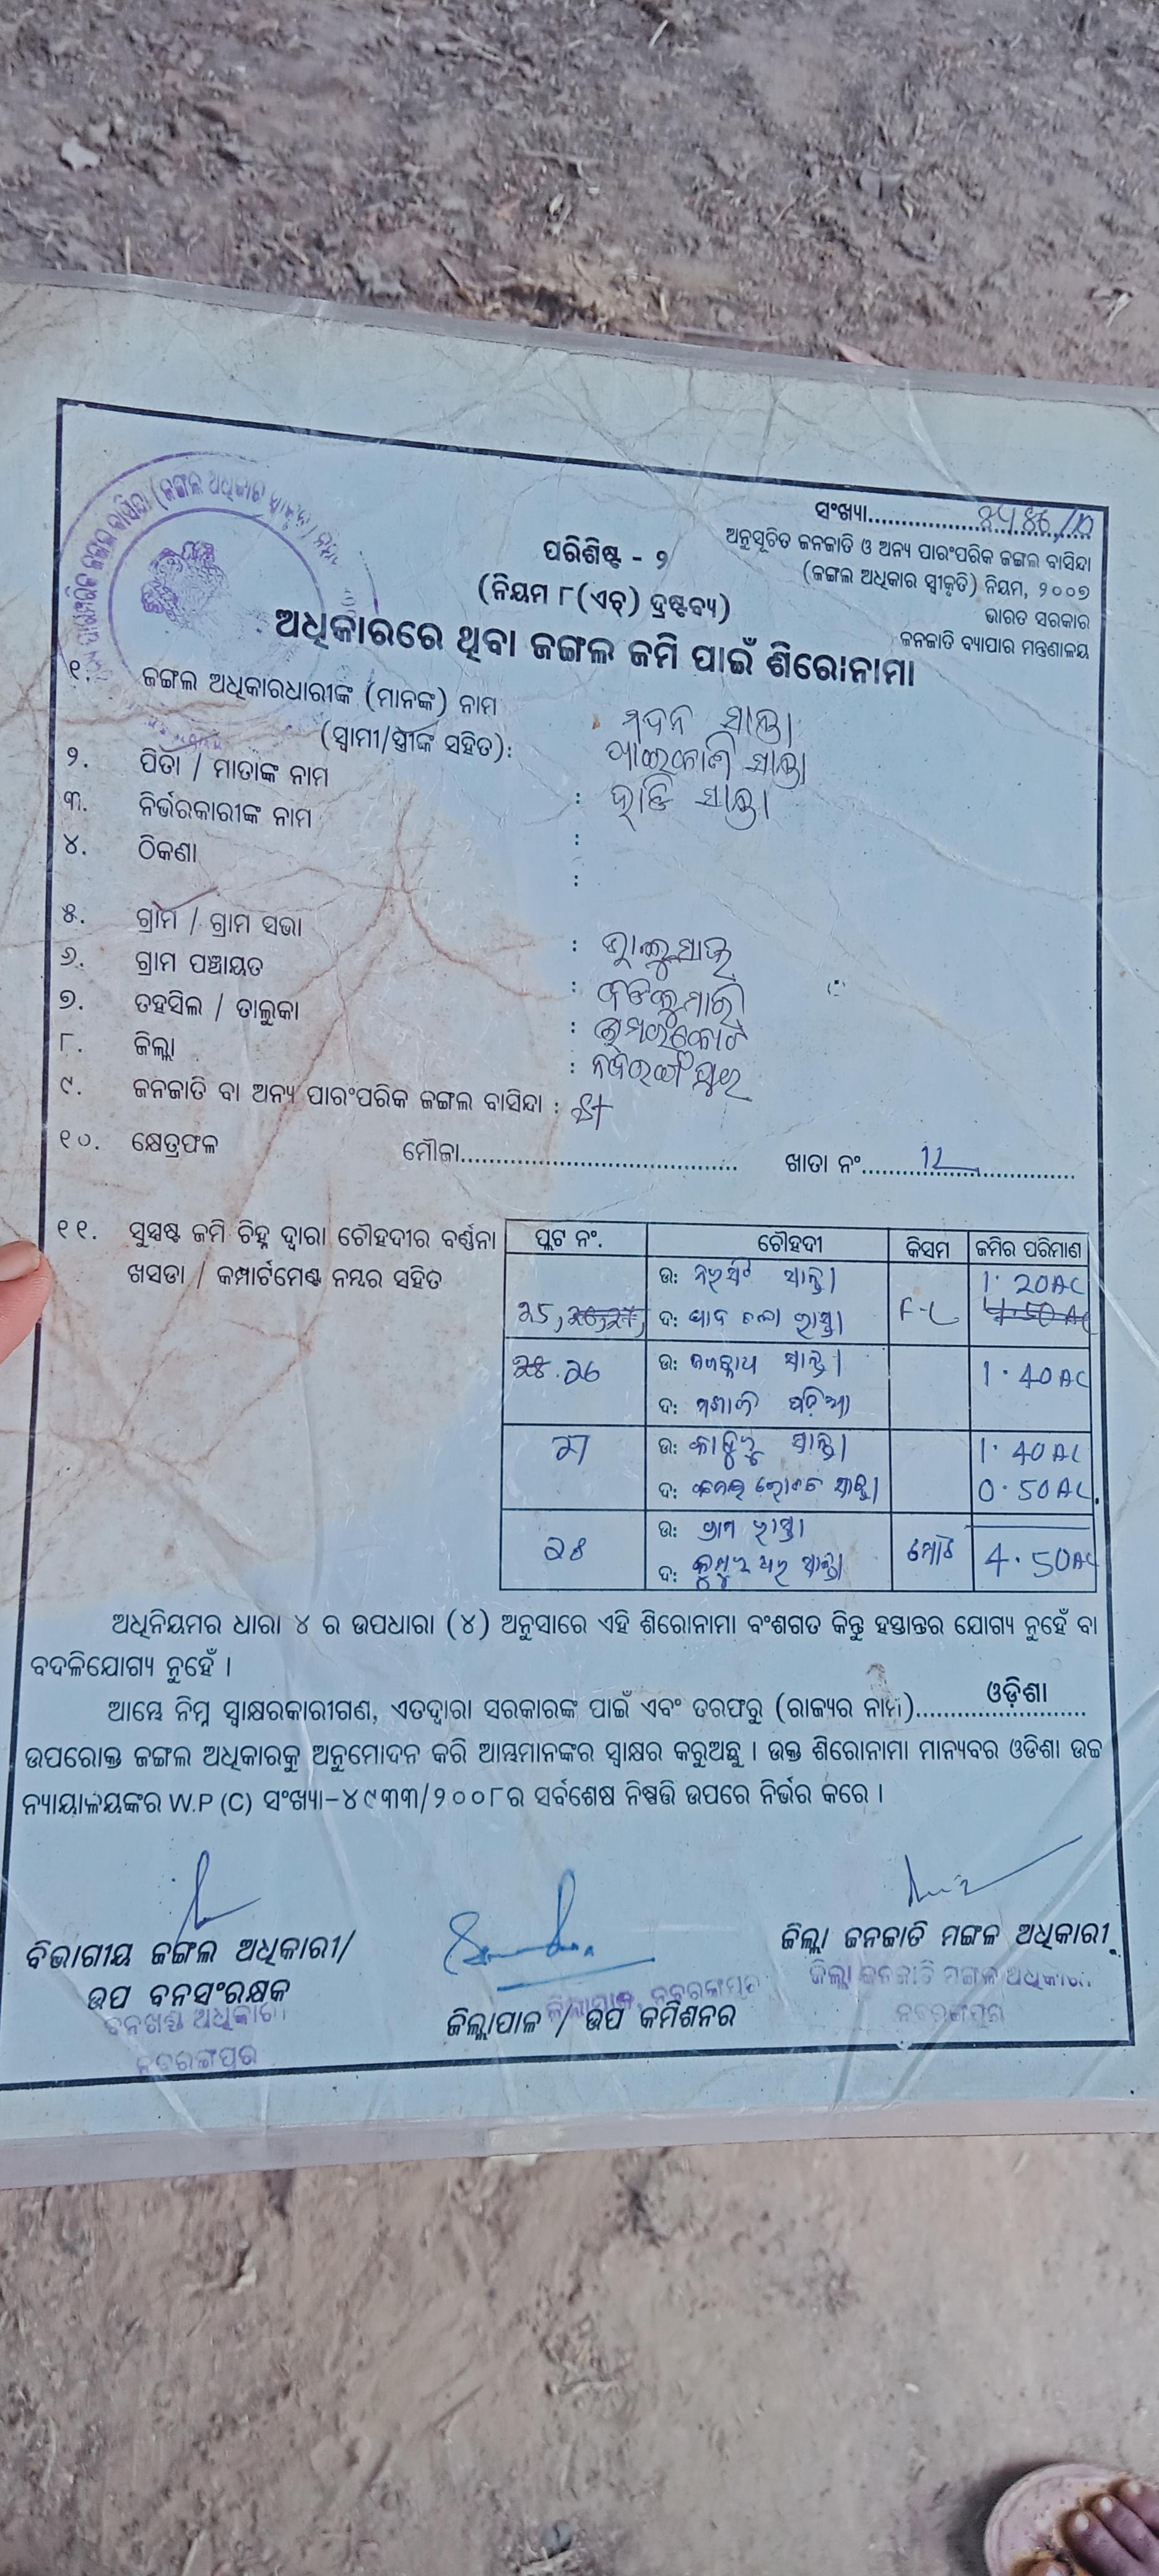 ସଂଖ୍ୟା
ଅନୁସୂଚିତ ଜନଜାତି ଓ ଅନ୍ୟ ପାରଂପରିକ ଜଙ୍ଗଲ ବାସିନ୍ଦା
(ଜଙ୍ଗଲ ଅଧିକାର ସ୍ୱୀକୃତି) ନିୟମ, ୨୦୦୭
ଭାରତ ସରକାର
ଜନଜାତି ବ୍ୟାପାର ମନ୍ତ୍ରଣାଳୟ
ପରିଶିଷ୍ଟ - ୨
(ନିୟମ ୮(ଏଚ୍) ଦ୍ରଷ୍ଟବ୍ୟ)
ଅଧିକାରରେ ଥିବା ଜଙ୍ଗଲ ଜମି ପାଇଁ ଶିରୋନାମା
୧. ଜଙ୍ଗଲ ଅଧିକାରଧାରୀଙ୍କ (ମାନଙ୍କ) ନାମ ମଦନ ସାନ୍ତା
(ସ୍ୱାମୀ/ସ୍ତ୍ରୀଙ୍କ ସହିତ): ସାନ୍ତା
୨. ପିତା / ମାତାଙ୍କ ନାମ : ସାନ୍ତା
୩. ନିର୍ଭରକାରୀଙ୍କ ନାମ :
୪. ଠିକଣା :
୫. ଗ୍ରାମ / ଗ୍ରାମ ସଭା :
୬. ଗ୍ରାମ ପଞ୍ଚାୟତ :
୭. ତହସିଲ / ତାଲୁକା : ଉମରକୋଟ
୮. ଜିଲ୍ଲା : ନବରଙ୍ଗପୁର
୯. ଜନଜାତି ବା ଅନ୍ୟ ପାରଂପରିକ ଜଙ୍ଗଲ ବାସିନ୍ଦା : ST
୧୦. କ୍ଷେତ୍ରଫଳ ମୌଜା ଖାତା ନଂ 12
୧୧. ସୁସ୍ପଷ୍ଟ ଜମି ଚିହ୍ନ ଦ୍ୱାରା ଚୌହଦୀର ବର୍ଣ୍ଣନା
ଖସଡା / କମ୍ପାର୍ଟମେଣ୍ଟ ନମ୍ବର ସହିତ
ପ୍ଲଟ ନଂ. ଚୌହଦୀ କିସମ ଜମିର ପରିମାଣ
ଉ: ସାନ୍ତା 1.20AC
25, 26,27, ଦ: ରାସ୍ତା F-L 4.50 AC
28. 26 ଉ: ସାନ୍ତା 1.40AC
ଦ: ମଶାନି ପଡ଼ିଆ
27 ଉ: ସାନ୍ତା 1.40AC
ଦ: ସାନ୍ତା 0.50AC.
28 ଉ: ରାସ୍ତା ମୋଟ 4.50AC
ଦ: ସାନ୍ତା
ଅଧିନିୟମର ଧାରା ୪ ର ଉପଧାରା (୪) ଅନୁସାରେ ଏହି ଶିରୋନାମା ବଂଶଗତ କିନ୍ତୁ ହସ୍ତାନ୍ତର ଯୋଗ୍ୟ ନୁହେଁ ବା
ବଦଳିଯୋଗ୍ୟ ନୁହେଁ ।
ଆମ୍ଭେ ନିମ୍ନ ସ୍ୱାକ୍ଷରକାରୀଗଣ, ଏତଦ୍ୱାରା ସରକାରଙ୍କ ପାଇଁ ଏବଂ ତରଫରୁ (ରାଜ୍ୟର ନାମ) ଓଡ଼ିଶା
ଉପରୋକ୍ତ ଜଙ୍ଗଲ ଅଧିକାରକୁ ଅନୁମୋଦନ କରି ଆମ୍ଭମାନଙ୍କର ସ୍ୱାକ୍ଷର କରୁଅଛୁ । ଉକ୍ତ ଶିରୋନାମା ମାନ୍ୟବର ଓଡିଶା ଉଚ୍ଚ
ନ୍ୟାୟାଳୟଙ୍କର W.P (C) ସଂଖ୍ୟା-୪୯୩୩/୨୦୦୮ର ସର୍ବଶେଷ ନିଷ୍ପତ୍ତି ଉପରେ ନିର୍ଭର କରେ ।
ବିଭାଗୀୟ ଜଙ୍ଗଲ ଅଧିକାରୀ/
ଉପ ବନସଂରକ୍ଷକ
ବନଖଣ୍ଡ ଅଧିକାରୀ
ନବରଙ୍ଗପୁର
ଜିଲ୍ଲାପାଳ, ନବରଙ୍ଗପୁର
ଜିଲ୍ଲାପାଳ / ଉପ କମିଶନର
ଜିଲ୍ଲା ଜନଜାତି ମଙ୍ଗଳ ଅଧିକାରୀ
ଜିଲ୍ଲା ଜନଜାତି ମଙ୍ଗଳ ଅଧିକାରୀ
ନବରଙ୍ଗପୁର